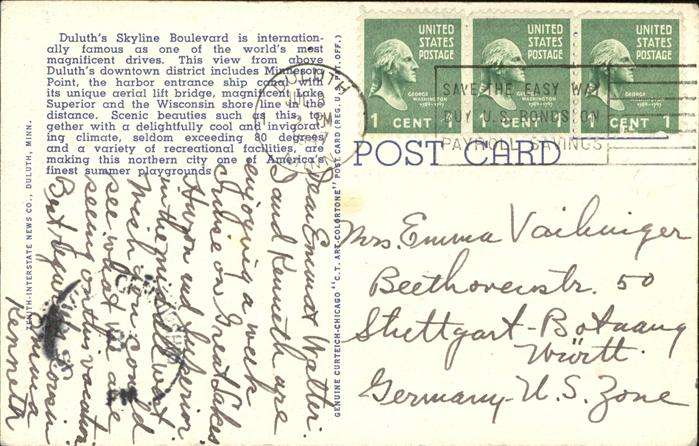 Duluth's Skyline Boulevard is internation-
ally famous as one of the world's most
magnificent drives. This view from above
Duluth's downtown district includes Minnesota
Point, the harbor entrance ship canal with
its unique aerial lift bridge, magnificent Lake
Superior and the Wisconsin shore line in the
distance. Scenic beauties such as this, to-
gether with a delightfully cool and invigorat-
ing climate, seldom exceeding 80 degrees
and a variety of recreational facilities, are
making this northern city one of America's
finest summer playgrounds
INTERSTATE NEWS CO., DULUTH, MINN.
GENUINE CURTEICH-CHICAGO "C.T. ART-COLORTONE" POST CARD (REG. U.S. PAT. OFF.)
DULUTH
PM
UNITED
STATES
POSTAGE
GEORGE
WASHINGTON
1 CENT 1
UNITED
STATES
POSTAGE
GEORGE
WASHINGTON
1 CENT 1
UNITED
STATES
POSTAGE
GEORGE
WASHINGTON
1 CENT 1
SAVE THE EASY WAY
BUY U.S. BONDS ON
PAYROLL SAVINGS
POST CARD
Dear Emma & Walter:
I and Kenneth are
enjoying a week
cruise on Great Lakes
Huron and Superior
in the midwest.
Wish you could
see what we are
seeing on this vacation
Best regards
Emma
Kenneth
Mrs. Emma Vaihinger
Beethovenstr. 50
Stuttgart-Botnang
Württ.
Germany-U.S. Zone
PM